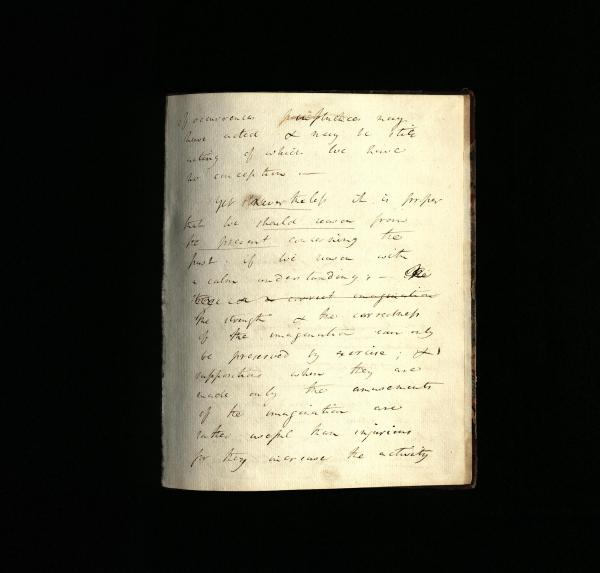 of occurrences may
have acted & may be still
acting of which we have
no conception —
Yet nevertheless it is proper
that we should reason from
the present concerning the
past; if we reason with
a calm understanding; — The
& a correct imagination
the strength & the correctness
of the imagination can only
be preserved by exercise; &
suppositions when they are
made only the amusements
of the imagination are
rather useful than injurious
for they increase the activity